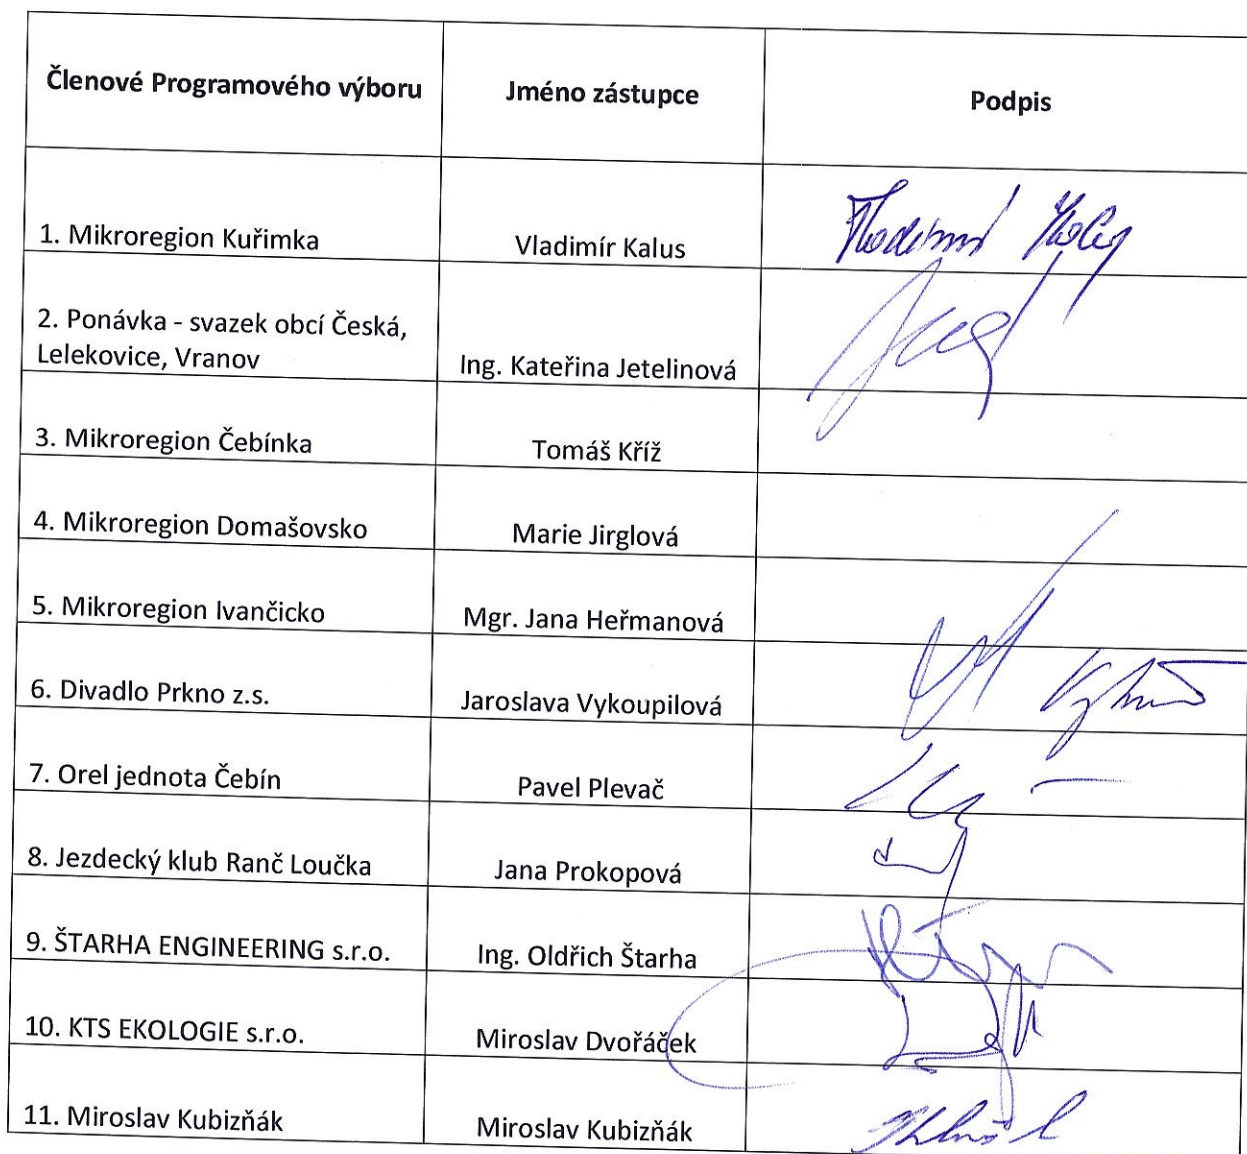 Členové Programového výboru
Jméno zástupce
Podpis
1. Mikroregion Kuřimka
Vladimír Kalus
2. Ponávka - svazek obcí Česká,
Lelekovice, Vranov
Ing. Kateřina Jetelinová
3. Mikroregion Čebínka
Tomáš Kříž
4. Mikroregion Domašovsko
Marie Jirglová
5. Mikroregion Ivančicko
Mgr. Jana Heřmanová
6. Divadlo Prkno z.s.
Jaroslava Vykoupilová
7. Orel jednota Čebín
Pavel Plevač
8. Jezdecký klub Ranč Loučka
Jana Prokopová
9. ŠTARHA ENGINEERING s.r.o.
Ing. Oldřich Štarha
10. KTS EKOLOGIE s.r.o.
Miroslav Dvořáček
11. Miroslav Kubizňák
Miroslav Kubizňák